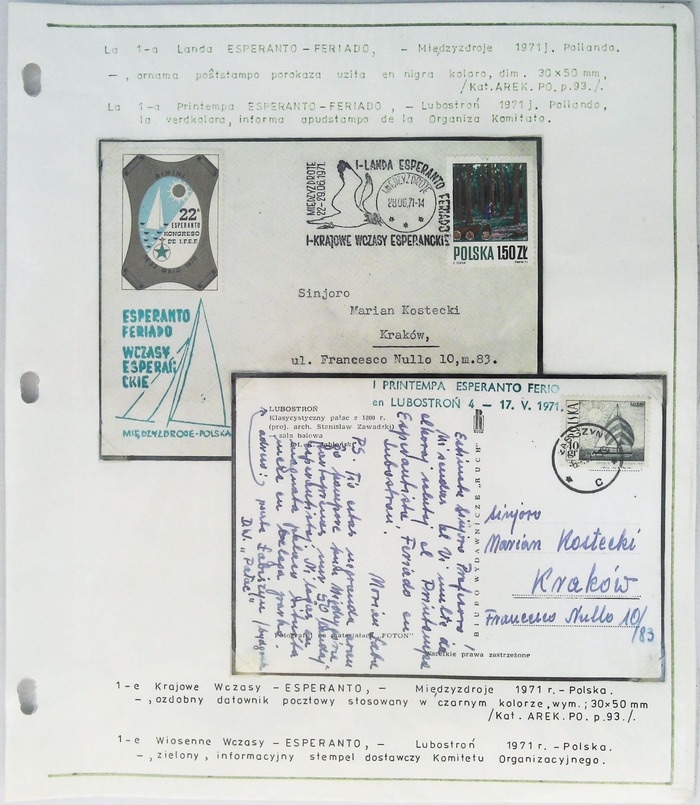 La 1-a Landa ESPERANTO-FERIADO, - Międzyzdroje 1971j. Pollando.
-, ornama poŝtstampo porokaza uzita en nigra koloro, dim. 30×50 mm,
/Kat. AREK. PO. p.93./.
La 1-a Printempa ESPERANTO-FERIADO, - Lubostroń 1971j. Pollando,
la verdkolora, informa apudstampo de la Organiza Komitato.
RIMINI
22ª
ESPERANTO
KONGRESO
DE I.F.E.F.
MAIO
ESPERANTO
FERIADO
WCZASY
ESPERAŃ
CKIE
MIĘDZYZDROJE-POLSKA
MIĘDZYZDROJE
22-29.06.1971.
I-LANDA ESPERANTO FERIADO
I-KRAJOWE WCZASY ESPERANCKIE
MIĘDZYZDROJE
28.06.71-14
POLSKA 1.50 ZŁ
Sinjoro
Marian Kostecki
Kraków,
ul. Francesco Nullo 10,m.83.
I PRINTEMPA ESPERANTO FERIO
en LUBOSTROŃ 4 - 17. V. 1971.
LUBOSTROŃ
Klasycystyczny pałac z 1800 r.
(proj. arch. Stanisław Zawadzki)
sala balowa
Estimata Sinjoro Profesoro!
Mi sendas al Vi multe da
elkoraj salutoj el Printempa
Esperantista Feriado en
Lubostroń.
PS.
BIURO WYDAWNICZE „RUCH"
Fotografii na materiałach „FOTON"
Wszelkie prawa zastrzeżone
POLSKA
10 gr
C
Sinjoro
Marian Kostecki
Kraków
Francesco Nullo 10/
/83
D.W. „Pałac"
1-e Krajowe Wczasy -ESPERANTO,- Międzyzdroje 1971 r.-Polska.
-, ozdobny datownik pocztowy stosowany w czarnym kolorze, wym.; 30×50 mm
/Kat. AREK. PO. p.93./.
1-e Wiosenne Wczasy -ESPERANTO,- Lubostroń 1971 r.-Polska.
-, zielony, informacyjny stempel dostawczy Komitetu Organizacyjnego.